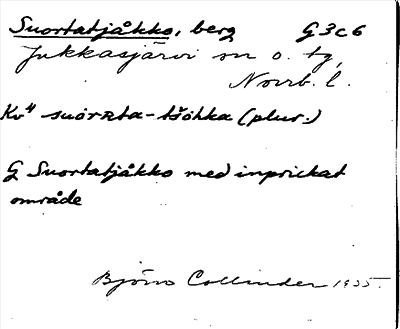 Suortatjåkko, berg G3c6
Jukkasjärvi sn o. tg,
Norrb. l.
Kv4 suòrʀta-tšòhka (plur.)
G Suortatjåkko med inprickat
område
Björn Collinder 1935.